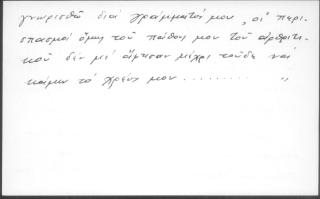 γνωρισθῶ διά γράμματός μου, οἱ περι-
σπασμοί ὅμως τοῦ πάθους μου τοῦ ἀρθριτι-
κοῦ δέν μέ ἄφησαν μέχρι τοῦδε νά
κάμω τό χρέος μου . . . . . . . . "